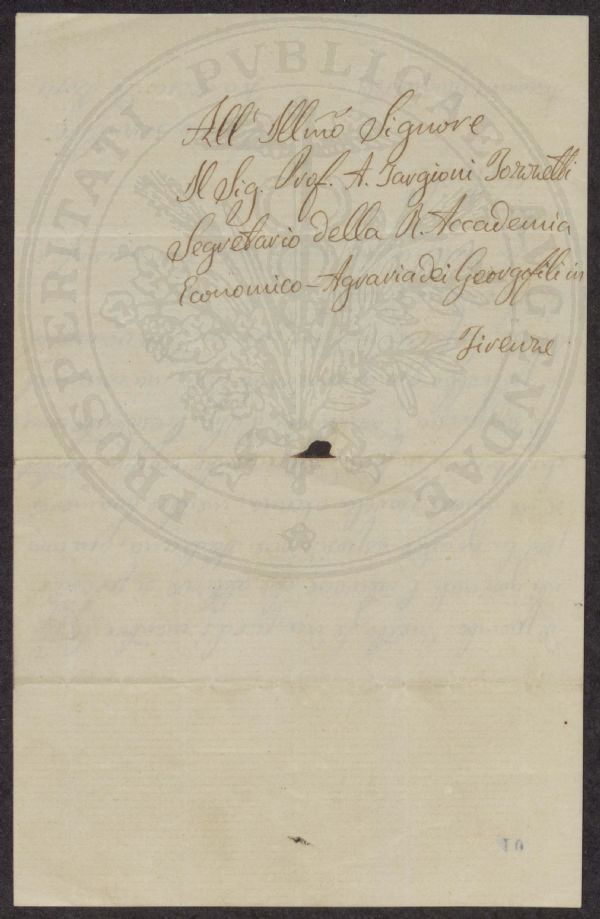 All' Illmõ Signore
Il Sig. Prof. A. Targioni Tozzetti
Segretario della R. Accademia
Economico-Agraria dei Georgofili in
Firenze
PROSPERITATI PVBLICAE AVGENDAE
10